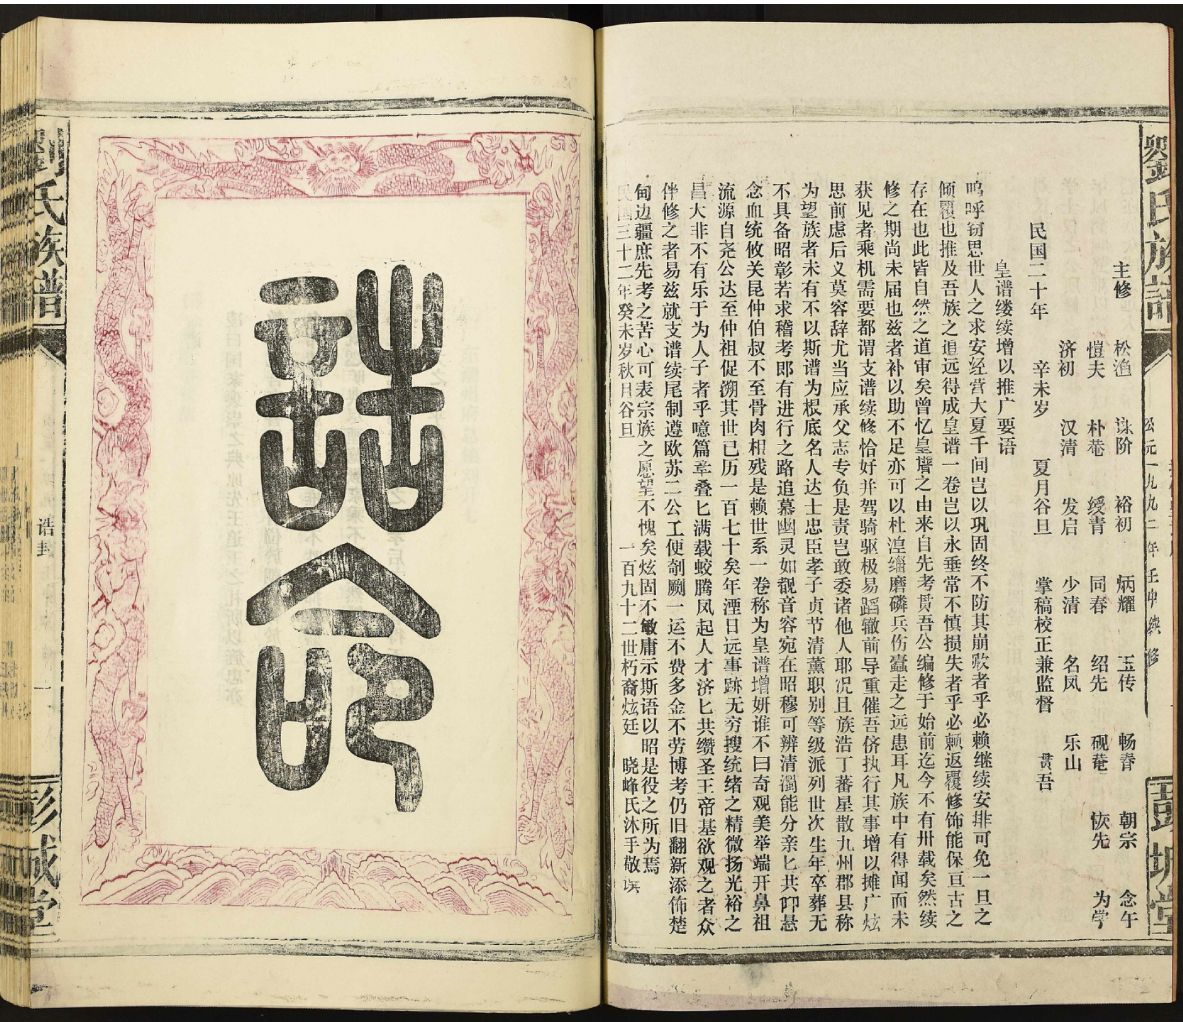 劉氏族譜
公元一九九二年壬申续修
彭城堂
主修 松渔 泳阶 裕初 炳耀 玉传 畅春 朝宗 念午
恺夫 朴菴 绶青 同春 绍先 砚菴 恢先 为学
济初 汉清 发启 少清 名凤 乐山
民国二十年 辛未岁 夏月谷旦 掌稿校正兼监督 贯吾
皇谱缕续增以推广要语
呜呼窃思世人之求安经营大夏千间岂以巩固终不防其崩歌者乎必赖继续安排可免一旦之
倾覆也推及吾族之追远得成皇谱一卷岂以永垂常不慎损失者乎必赖返覆修饰能保亘古之
存在也此皆自然之道审矣曾忆皇谱之由来自先考贯吾公编修于始前迄今不有卅载矣然续
修之期尚未届也兹者补以助不足亦可以杜湟缁磨磷兵伤蠹走之远患耳凡族中有得闻而未
获见者乘机需要都谓支谱续修恰好并驾骑驱极易蹈辙前导重催吾侪执行其事增以摊广炫
思前虑后义莫容辞尤当应承父志专负是责岂敢委诸他人耶况且族浩丁蕃星散九州郡县称
为望族者未有不以斯谱为根底名人达士忠臣孝子贞节清薰职别等级派列世次生年卒葬无
不具备昭彰若求稽考即有进行之路追慕幽灵如觌音容宛在昭穆可辨清濁能分亲匕共卬悬
念血统攸关昆仲伯叔不至骨肉相残是赖世系一卷称为皇谱增妍谁不曰奇观美举端开鼻祖
流源自尧公达至仲祖促溯其世已历一百七十矣年湮日远事跡无穷搜统绪之精微扬光裕之
昌大非不有乐于为人子者乎噫篇章叠匕满载蛟腾凤起人才济匕共缵圣王帝基欲观之者众
伴修之者易兹就支谱续尾制遵欧苏二公工便剞劂一运不费多金不劳博考仍旧翻新添饰楚
甸边疆庶先考之苦心可表宗族之愿望不愧矣炫固不敏庸示斯语以昭是役之所为焉
民国三十二年癸未岁秋月谷旦 一百九十二世朽裔炫廷 晓峰氏沐手敬撰
誥命
劉氏族谱
诰封
一
彭城堂